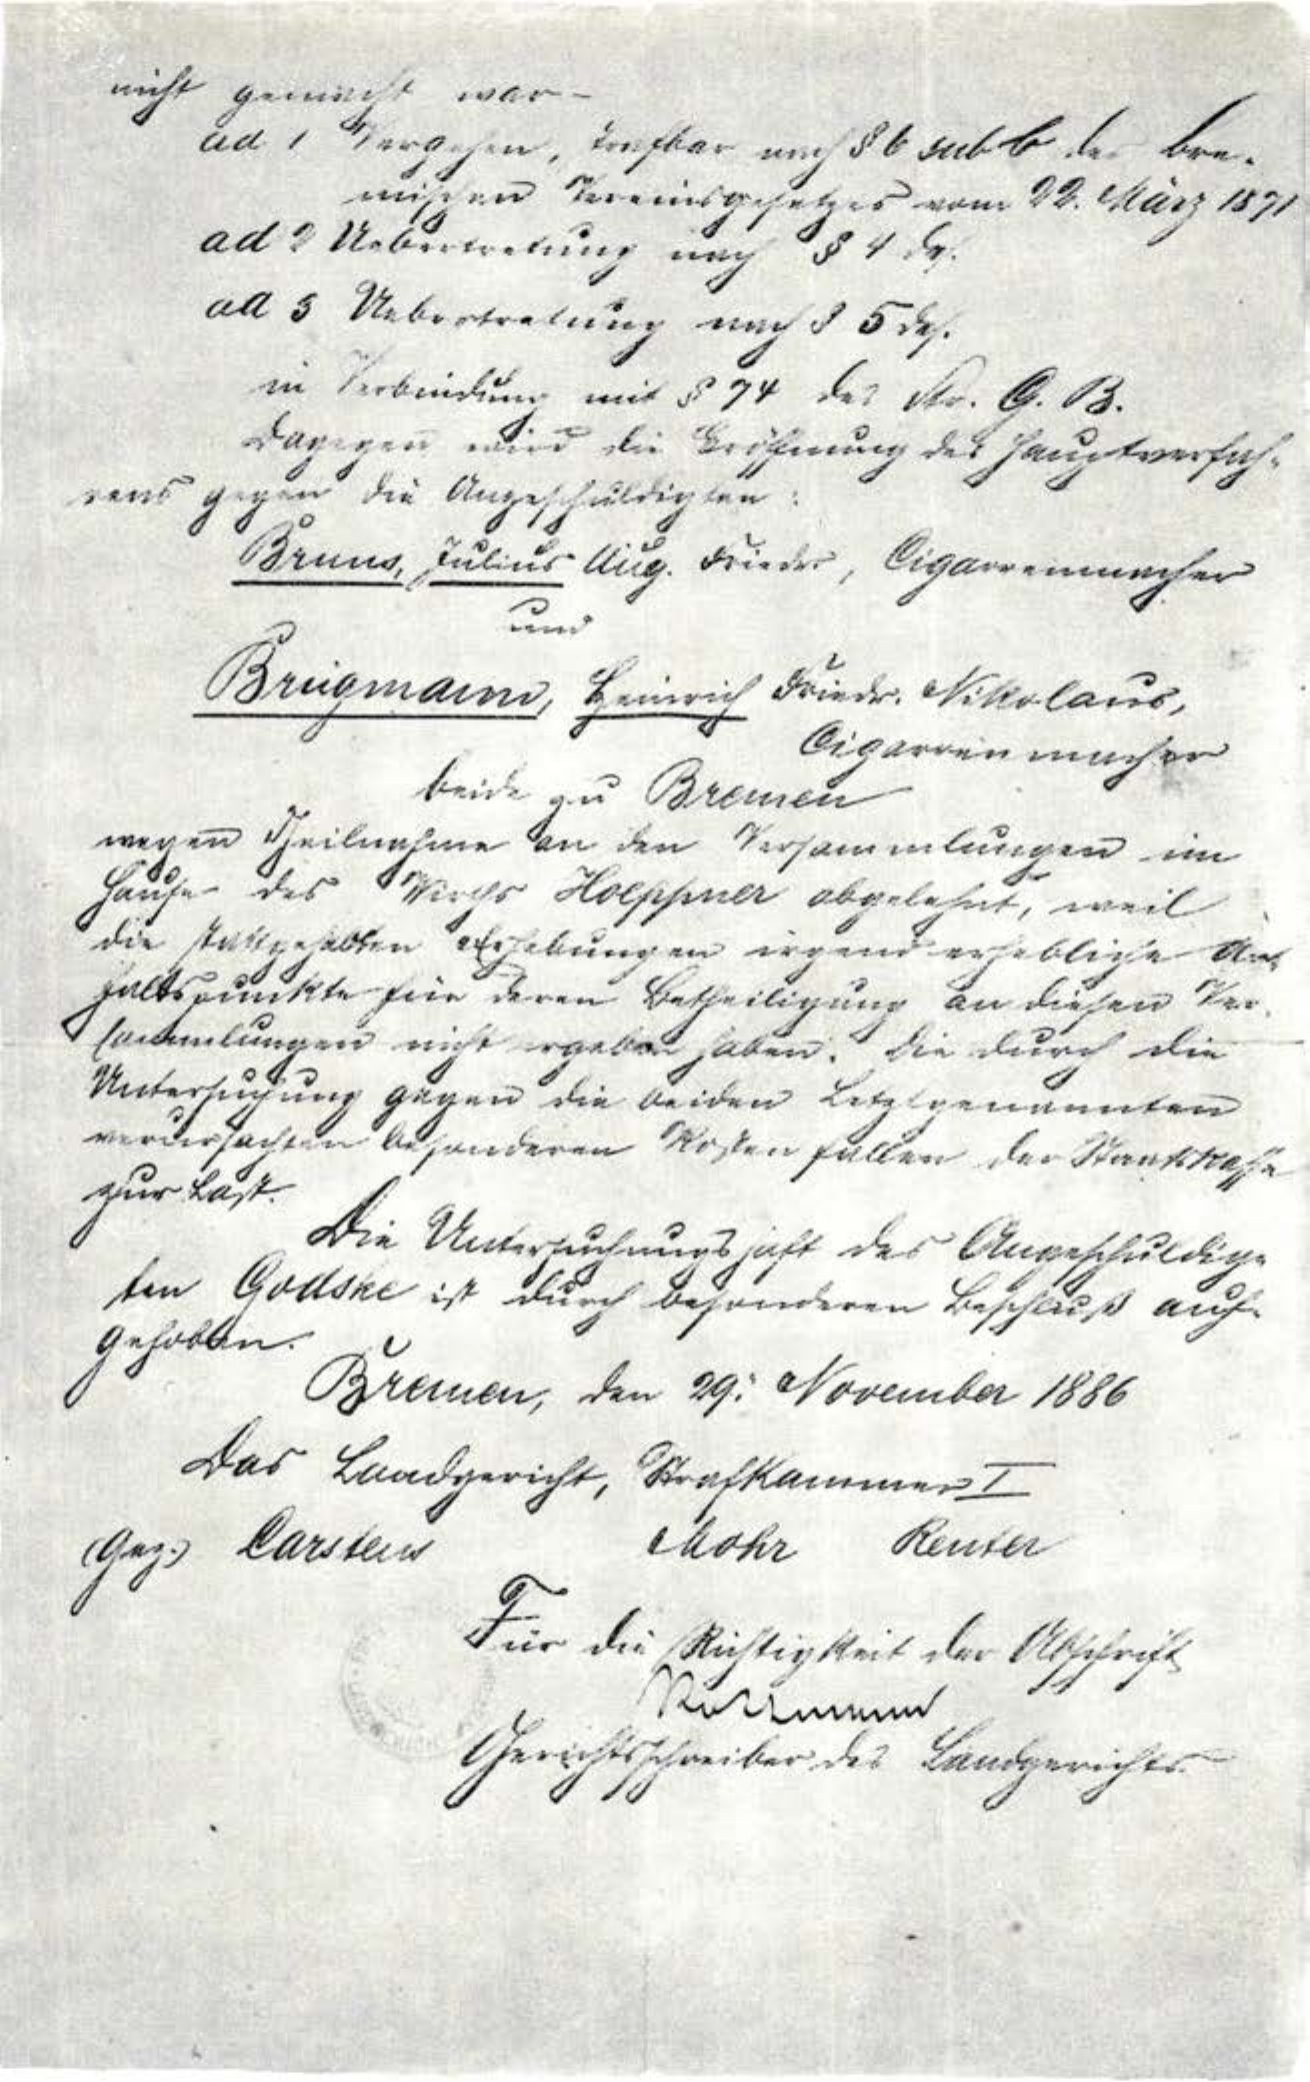 nicht gemacht war –
ad 1 Vergehen, strafbar nach § 6 sub b des bre-
mischen Vereinsgesetzes vom 22. März 1871
ad 2 Uebertretung nach § 4 das.
ad 3 Uebertretung nach § 5 das.
in Verbindung mit § 74 des Str. G. B.
Dagegen wird die Eröffnung des Hauptverfah-
rens gegen die Angeschuldigten:
Bruns, Julius Aug. Friedr., Cigarrenmacher
und
Brügmann, Heinrich Friedr. Nikolaus,
Cigarrenmacher
beide zu Bremen
wegen Theilnahme an den Versammlungen im
Hause des Wirths Hoeppner abgelehnt, weil
die stattgehabten Erhebungen irgend erhebliche An-
haltspunkte für deren Betheiligung an diesen Ver-
sammlungen nicht ergeben haben. Die durch die
Untersuchung gegen die beiden Letztgenannten
verursachten besonderen Kosten fallen der Staatskasse
zur Last.
Die Untersuchungshaft des Angeschuldig-
ten Godske ist durch besonderen Beschluß auf-
gehoben.
Bremen, den 29. November 1886
Das Landgericht, Strafkammer I
(Gez.) Carstens Mohr Reuter
Für die Richtigkeit der Abschrift
Gerichtsschreiber des Landgerichts